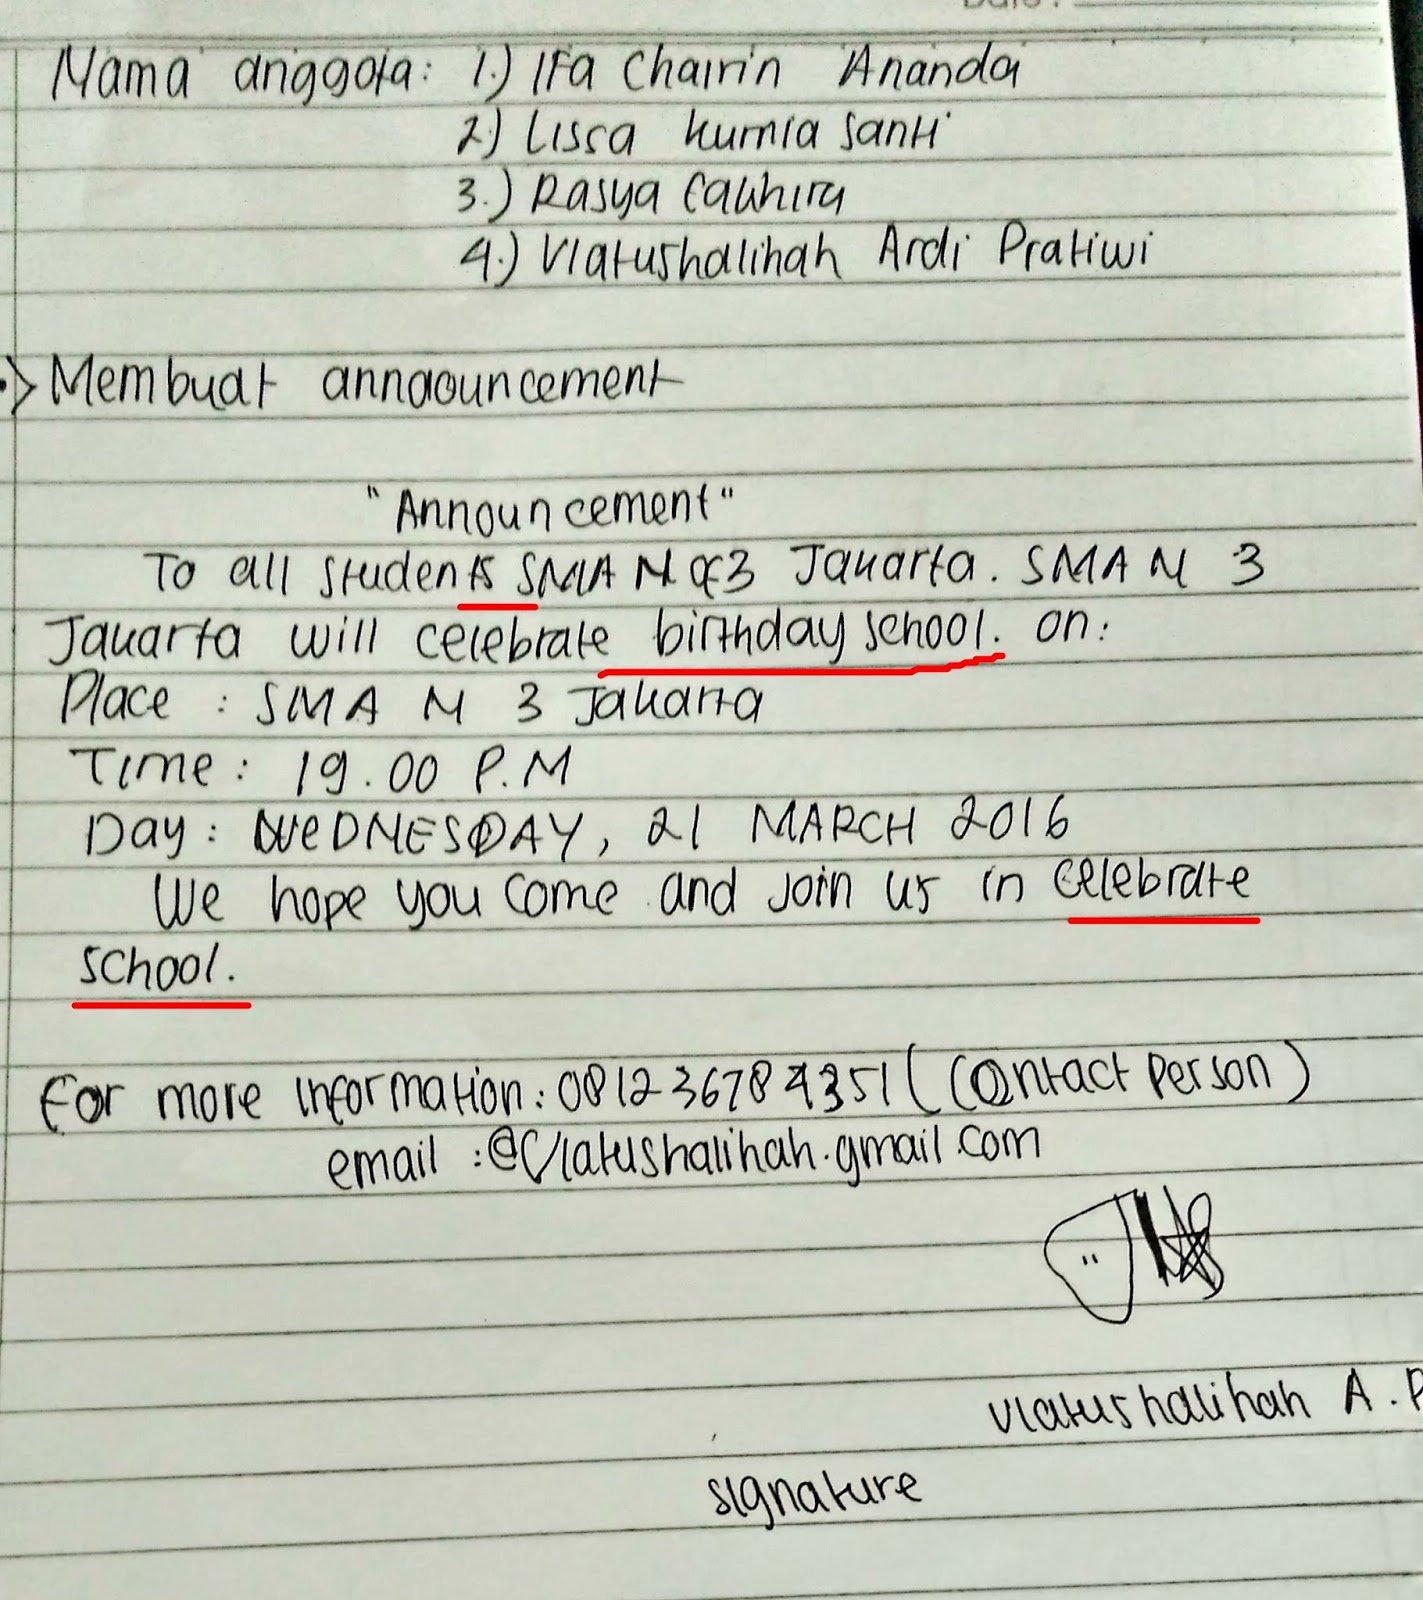 Nama anggota: 1.) Ifa Chairin Ananda
2.) Lisca Kurnia Santi
3.) Rasya
4.) Viatushalihah Ardi Pratiwi
Membuat annaouncement
"Announcement"
To all students SMA N 3 Jakarta. SMA N 3
Jakarta will celebrate birthday school. on:
Place : SMA N 3 Jakarta
Time : 19.00 P.M
Day : WEDNESDAY, 21 MARCH 2016
We hope you come and join us in celebrate
school.
For more information : 081236784351 ( Contact Person )
email : @Viatushalihah.gmail.com
Viatushalihah A.P
signature